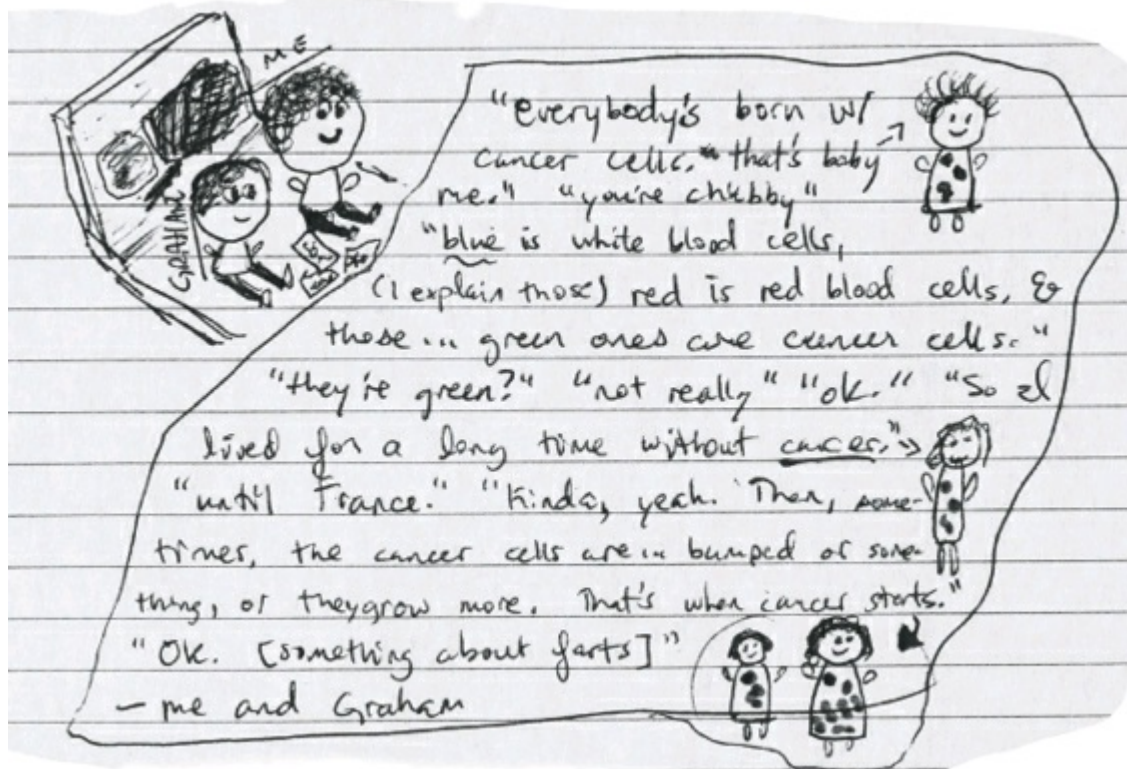 ME
GRAHAM
"everybody's born w/
cancer cells. that's baby
me." "you're chubby"
"blue is white blood cells,
(I explain those) red is red blood cells, &
those... green ones are cancer cells."
"they're green?" "not really" "ok." "So I
lived for a long time without cancer."
"until France." "Kinda, yeah. Then, some-
times, the cancer cells are... bumped or some-
thing, or they grow more. That's when cancer starts."
"OK. [something about farts]"
— me and Graham